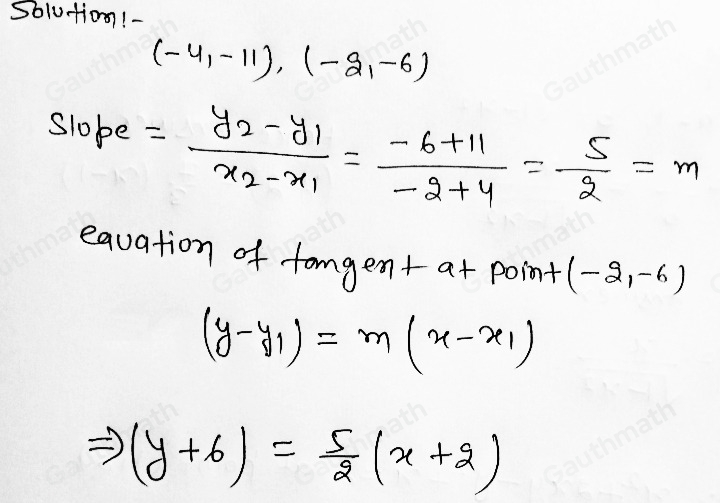 Solution:-
(-4,-11), (-2,-6)
Slope = y2-y1/x2-x1 = -6+11/-2+4 = 5/2 = m
equation of tangent at point (-2,-6)
(y-y1) = m (x-x1)
⇒(y+6) = 5/2 (x+2)
Gauthmath